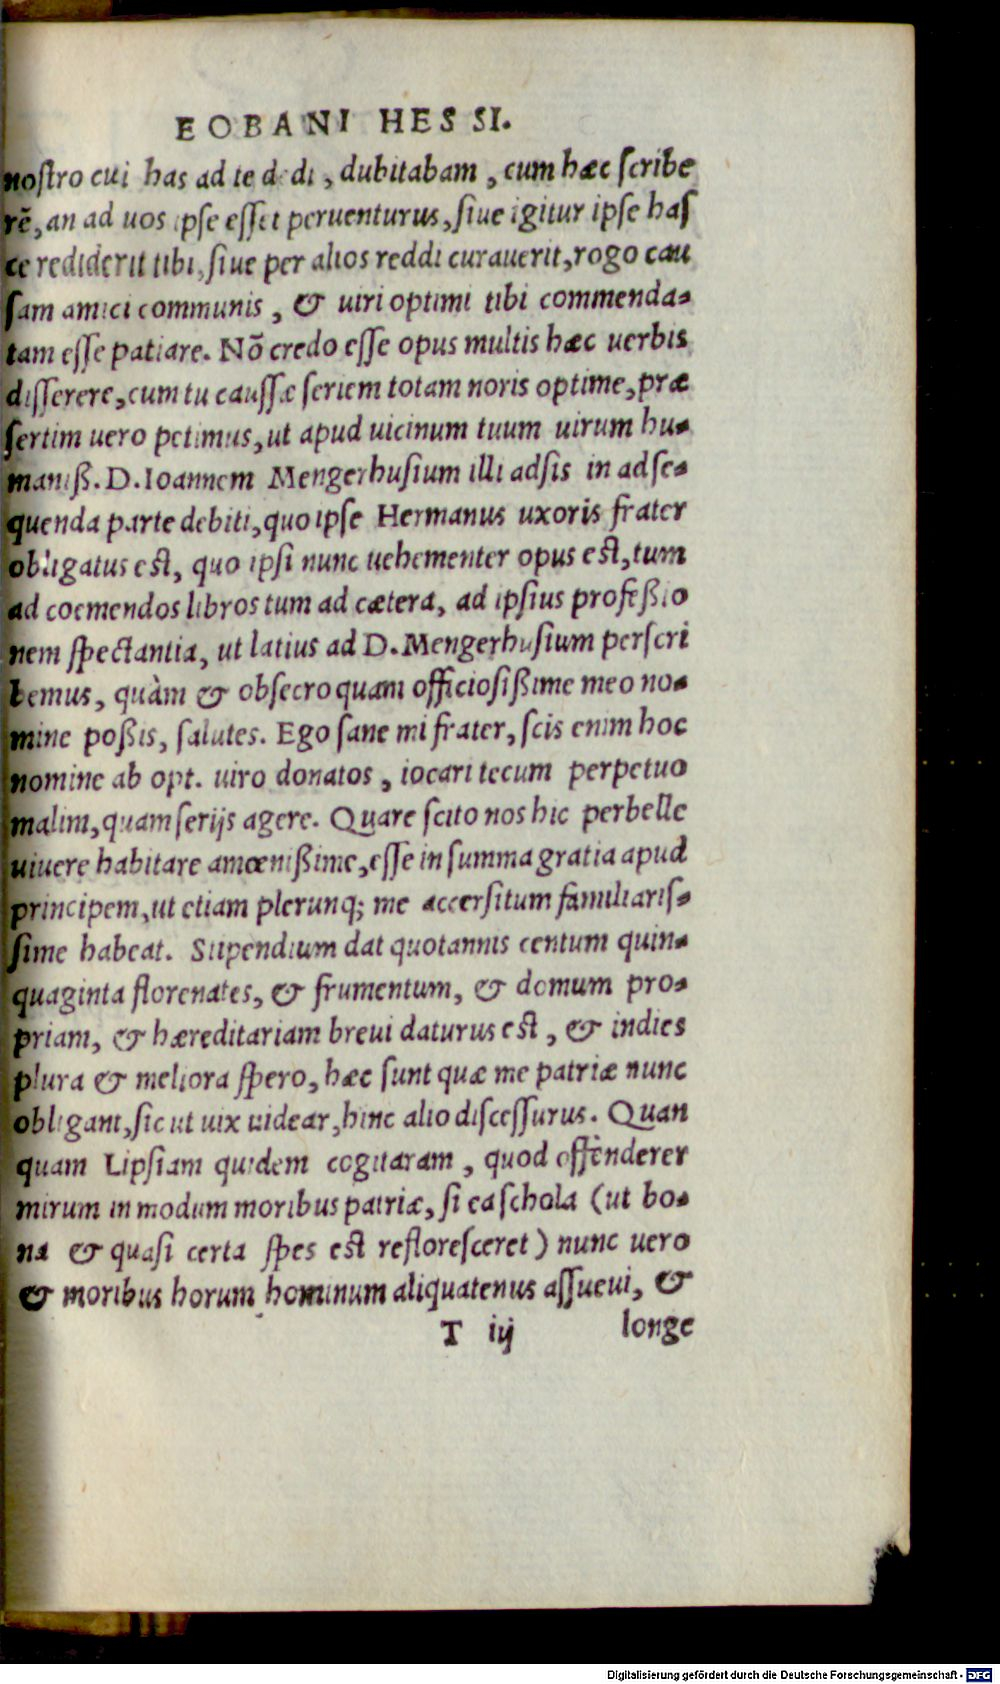 EOBANI HESSI.
noſtro cui has ad te dedi, dubitabam, cum hæc ſcribe
rẽ, an ad uos ipſe eſſet peruenturus, ſiue igitur ipſe haſ
ce rediderit tibi, ſiue per alios reddi curauerit, rogo cau
ſam amici communis, & uiri optimi tibi commenda-
tam eſſe patiare. Nõ credo eſſe opus multis hæc uerbis
diſſerere, cum tu cauſſæ ſeriem totam noris optime, præ
ſertim uero petimus, ut apud uicinum tuum uirum hu-
maniß. D. Ioannem Mengerhuſium illi adſis in adſe-
quenda parte debiti, quo ipſe Hermanus uxoris frater
obligatus eſt, quo ipſi nunc uehementer opus eſt, tum
ad coemendos libros tum ad cætera, ad ipſius profeßio
nem ſpectantia, ut latius ad D. Mengerhuſium perſcri
bemus, quàm & obſecro quam officioſißime meo no-
mine poßis, ſalutes. Ego ſane mi frater, ſcis enim hoc
nomine ab opt. uiro donatos, iocari tecum perpetuo
malim, quam ſerijs agere. Quare ſcito nos hic perbelle
uiuere habitare amœnißime, eſſe in ſumma gratia apud
principem, ut etiam plerunq; me accerſitum familiariſ-
ſime habeat. Stipendium dat quotannis centum quin-
quaginta florenates, & frumentum, & domum pro-
priam, & hæreditariam breui daturus eſt, & indies
plura & meliora ſpero, hæc ſunt quæ me patriæ nunc
obligant, ſic ut uix uidear, hinc alio diſceſſurus. Quan
quam Lipſiam quidem cogitaram, quod offenderer
mirum in modum moribus patriæ, ſi ea ſchola (ut bo-
na & quaſi certa ſpes eſt refloreſceret) nunc uero
& moribus horum hominum aliquatenus aſſueui, &
T iij longe
Digitalisierung gefördert durch die Deutsche Forschungsgemeinschaft - DFG